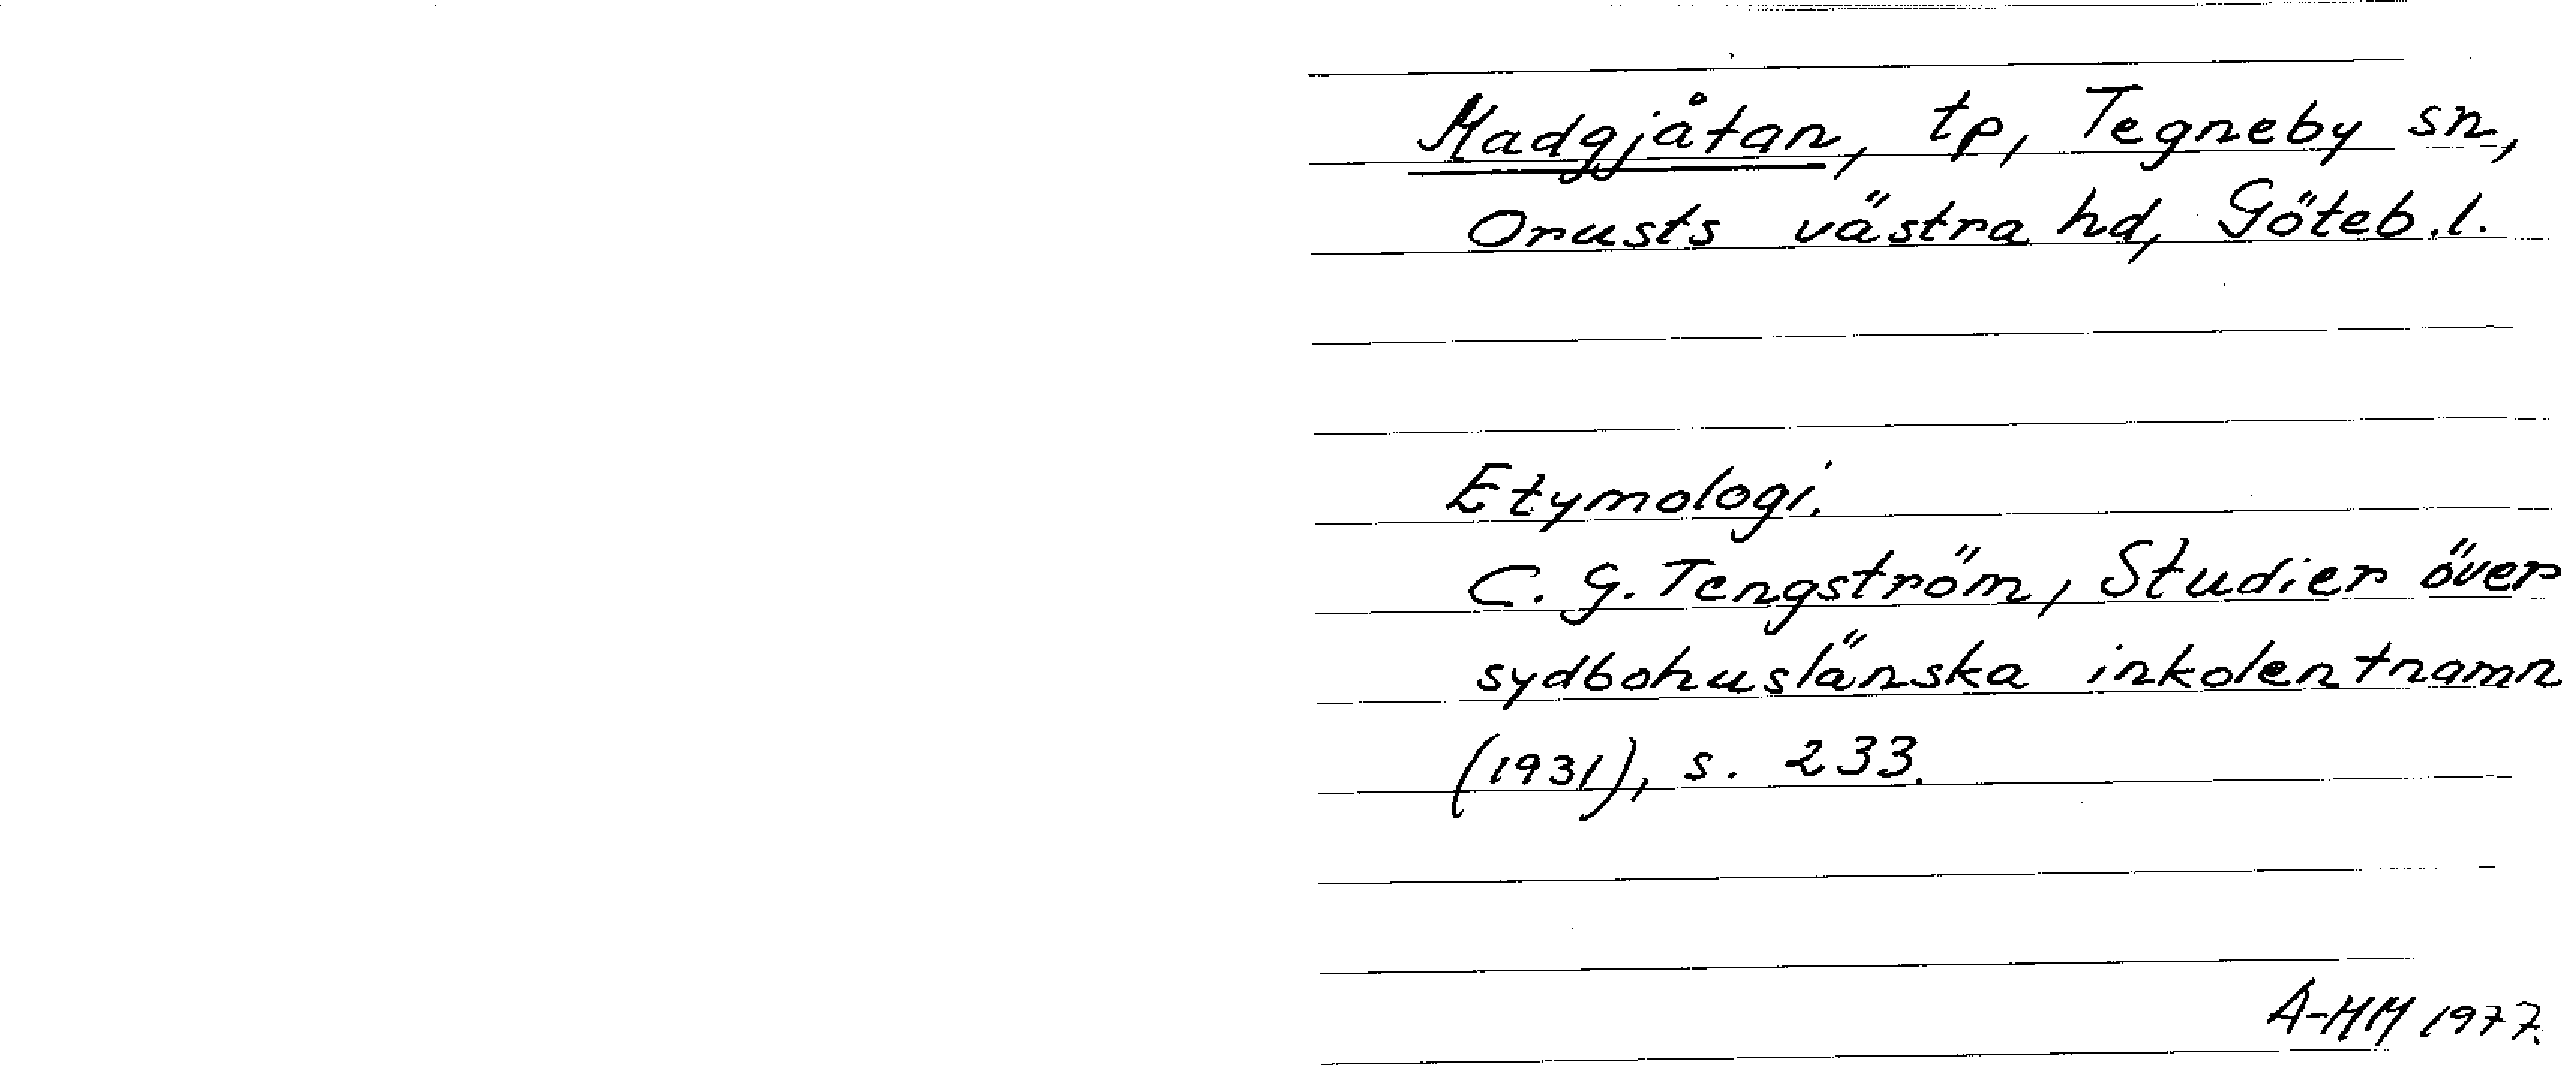 Madgjåtan, tp, Tegneby sn,
Orusts västra hd, Göteb.l.
Etymologi.
C. G. Tengström, Studier över
sydbohuslänska inkolentnamn
(1931), s. 233.
A-MM 1977.